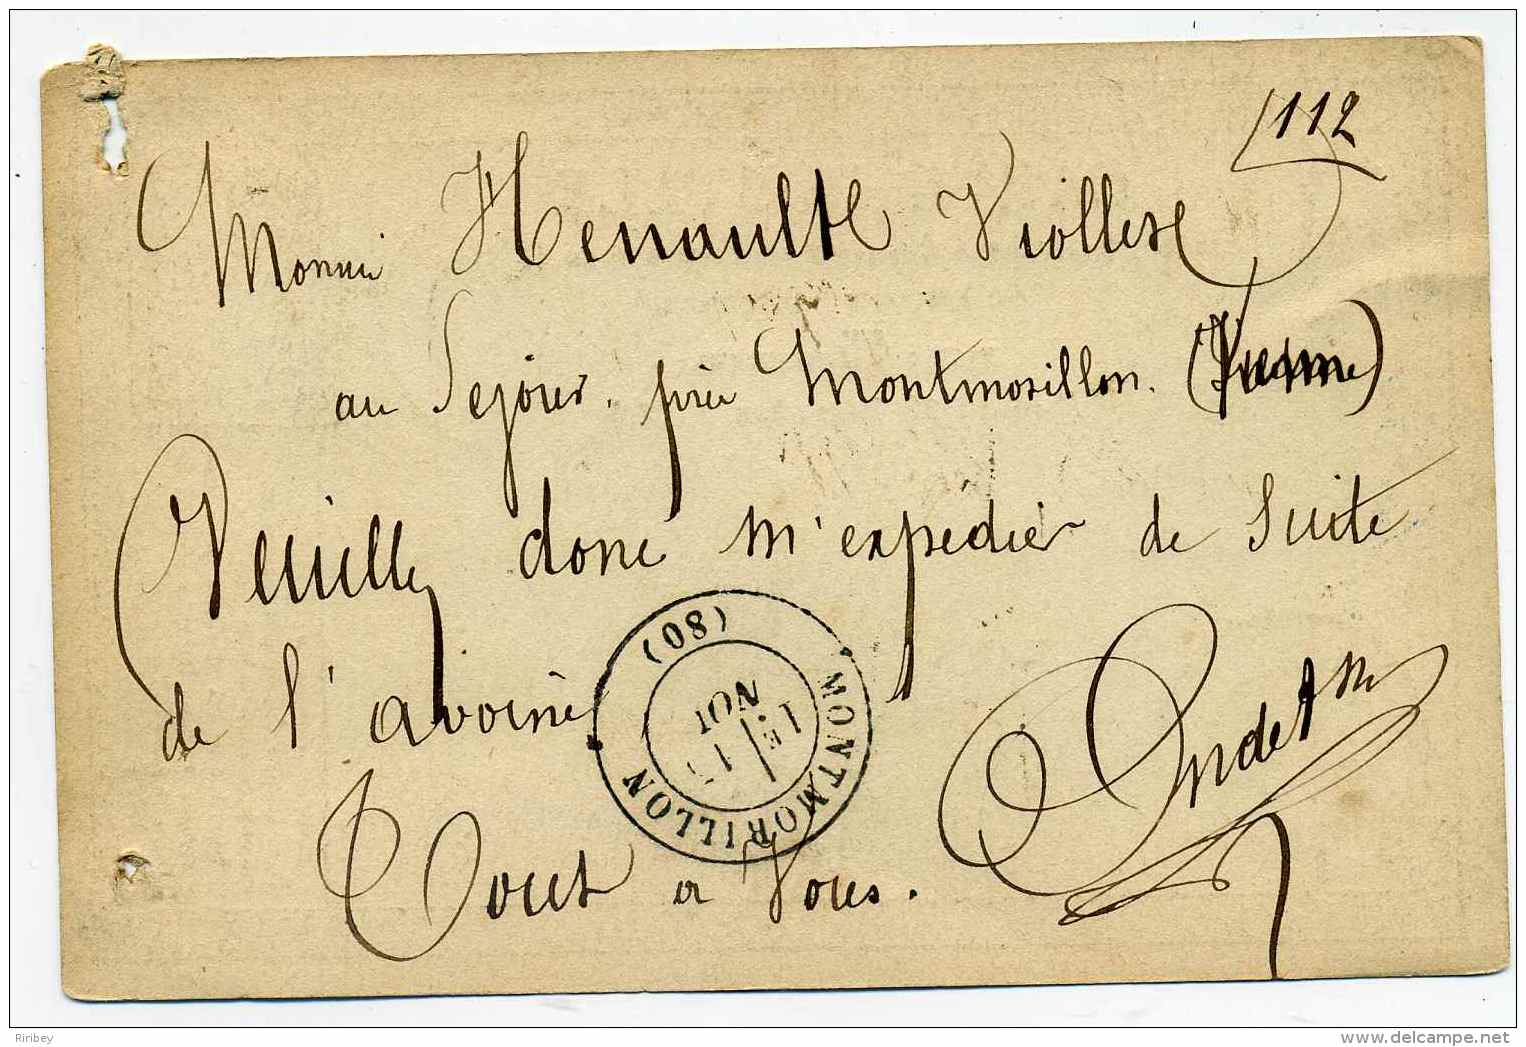 112
Hénault Viollet
au Sejour. près Montmorillon. (Vienne)
Veuillez donc m'expedier de Suite
de l'avoine
Tout a Vous.
MONTMORILLON (80)
1E
NOV
Ribey
delcampe.net